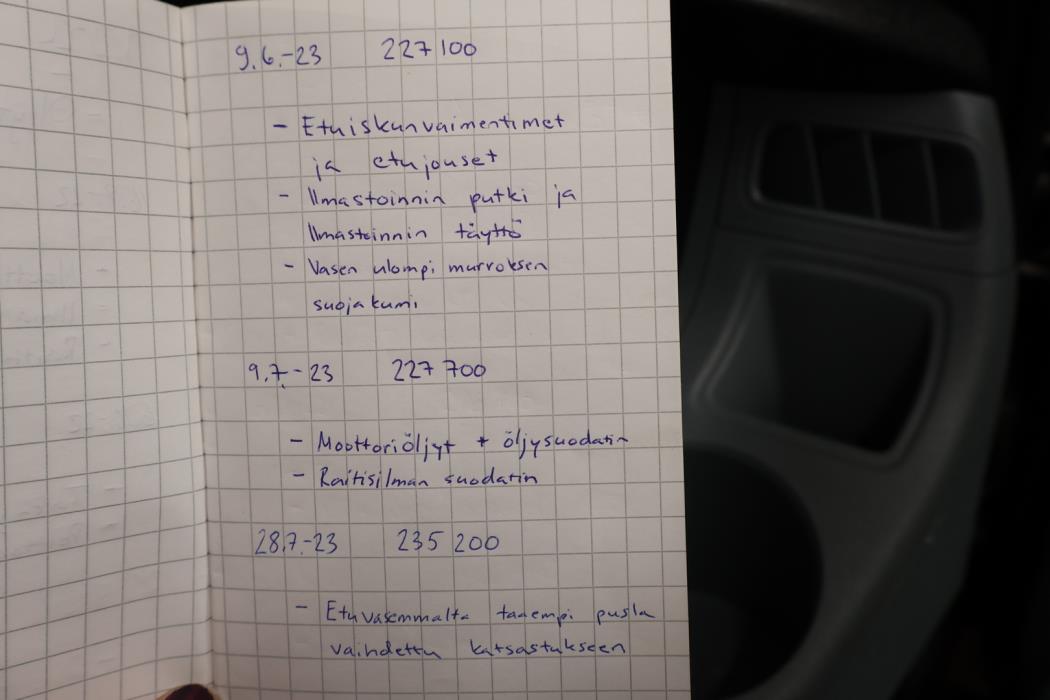 9.6.-23 227 100
- Etuiskunvaimentimet
ja etujouset
- Ilmastoinnin putki ja
Ilmastoinnin täyttö
- Vasen ulompi murroksen
suojakumi
9.7.-23 227 700
- Moottoriöljyt + öljysuodatin
- Raitisilman suodatin
28.7.-23 235 200
- Etuvasemmalta taaempi pusla
vaihdettu katsastukseen